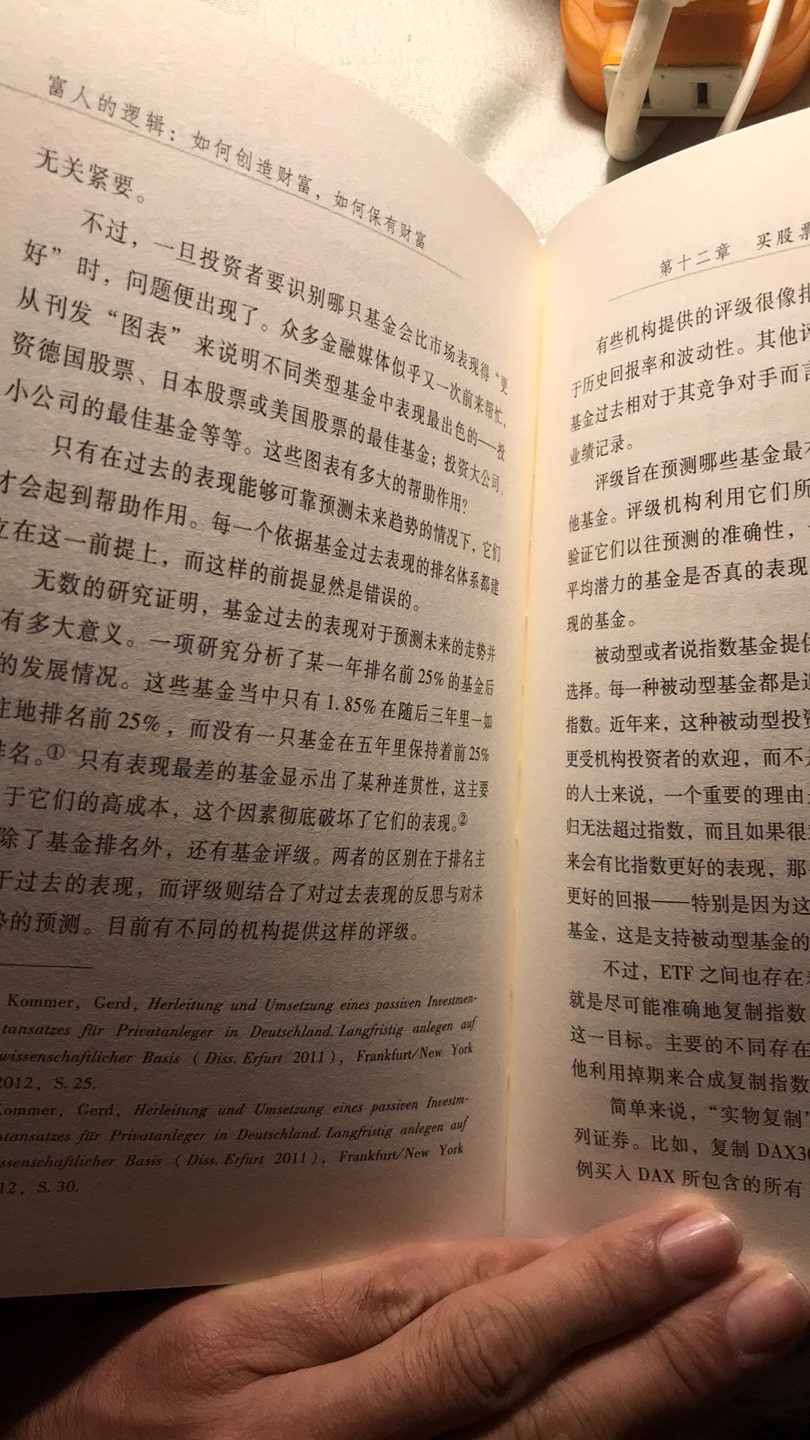 富人的逻辑：如何创造财富，如何保有财富
无关紧要。
不过，一旦投资者要识别哪只基金会比市场表现得“更
好”时，问题便出现了。众多金融媒体似乎又一次前来帮忙，
从刊发“图表”来说明不同类型基金中表现最出色的——投
资德国股票、日本股票或美国股票的最佳基金；投资大公司、
小公司的最佳基金等等。这些图表有多大的帮助作用？
只有在过去的表现能够可靠预测未来趋势的情况下，它们
才会起到帮助作用。每一个依据基金过去表现的排名体系都建
立在这一前提上，而这样的前提显然是错误的。
无数的研究证明，基金过去的表现对于预测未来的走势并
有多大意义。一项研究分析了某一年排名前25%的基金后
的发展情况。这些基金当中只有1.85%在随后三年里一如
往地排名前25%，而没有一只基金在五年里保持着前25%
排名。① 只有表现最差的基金显示出了某种连贯性，这主要
于它们的高成本，这个因素彻底破坏了它们的表现。②
除了基金排名外，还有基金评级。两者的区别在于排名主
于过去的表现，而评级则结合了对过去表现的反思与对未
势的预测。目前有不同的机构提供这样的评级。
Kommer, Gerd, Herleitung und Umsetzung eines passiven Investmen-
tansatzes für Privatanleger in Deutschland. Langfristig anlegen auf
wissenschaftlicher Basis (Diss. Erfurt 2011), Frankfurt/New York
2012, S. 25.
Kommer, Gerd, Herleitung und Umsetzung eines passiven Investm-
ntansatzes für Privatanleger in Deutschland. Langfristig anlegen auf
ssenschaftlicher Basis (Diss. Erfurt 2011), Frankfurt/New York
12, S. 30.
第十二章 买股票
有些机构提供的评级很像排
于历史回报率和波动性。其他评
基金过去相对于其竞争对手而言
业绩记录。
评级旨在预测哪些基金最不
他基金。评级机构利用它们所
验证它们以往预测的准确性，
平均潜力的基金是否真的表现
现的基金。
被动型或者说指数基金提供
选择。每一种被动型基金都是追
指数。近年来，这种被动型投资
更受机构投资者的欢迎，而不是
的人士来说，一个重要的理由是
归无法超过指数，而且如果很
来会有比指数更好的表现，那
更好的回报——特别是因为这
基金，这是支持被动型基金的
不过，ETF 之间也存在
就是尽可能准确地复制指数
这一目标。主要的不同存在
他利用掉期来合成复制指数
简单来说，“实物复制”
列证券。比如，复制 DAX30
例买入 DAX 所包含的所有